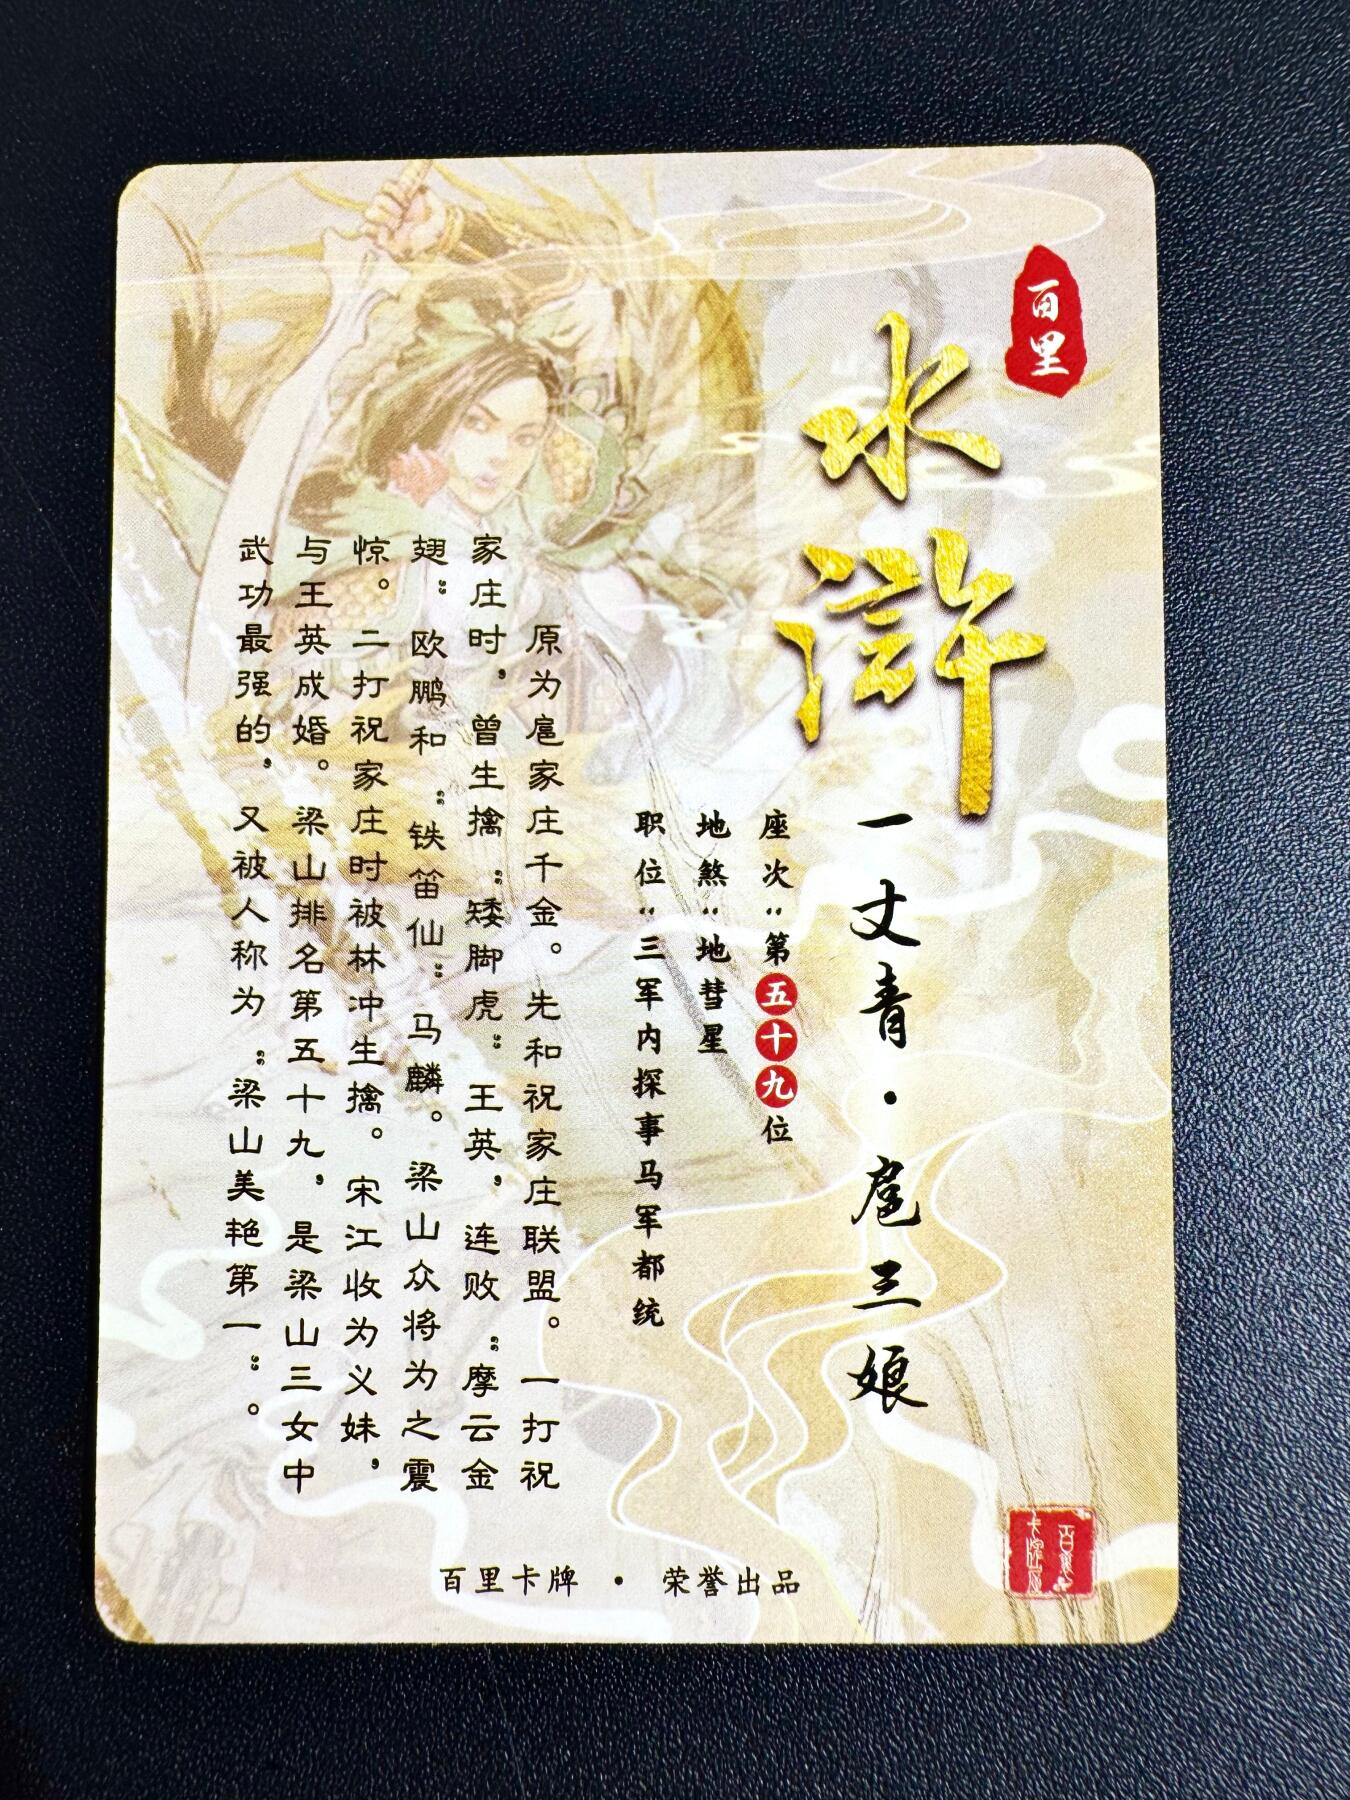 百里
水浒
一丈青·扈三娘
座次：第五十九位
地煞：地彗星
职位：三军内探事马军都统
原为扈家庄千金。先和祝家庄联盟。一打祝
家庄时，曾生擒“矮脚虎”王英，连败“摩云金
翅”欧鹏和“铁笛仙”马麟。梁山众将为之震
惊。二打祝家庄时被林冲生擒。宋江收为义妹，
与王英成婚。梁山排名第五十九，是梁山三女中
武功最强的，又被人称为“梁山美艳第一”。
百里卡牌·荣誉出品